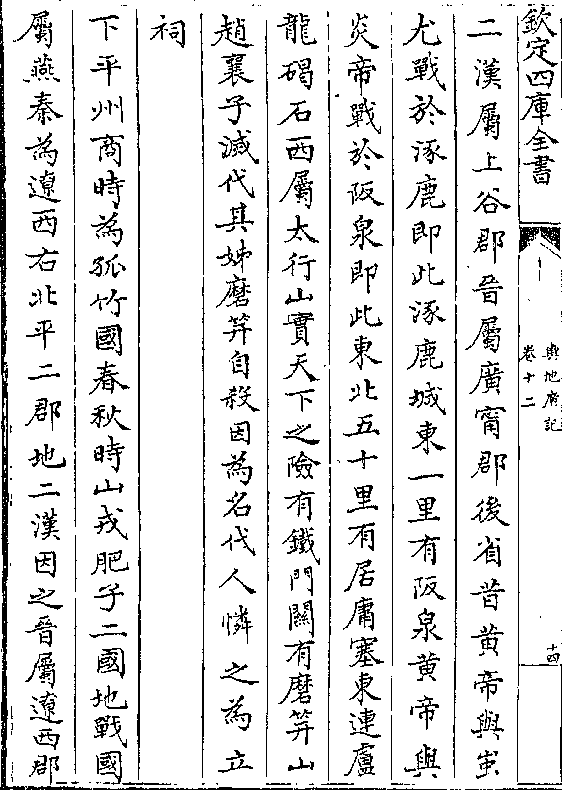 欽定四庫全書
輿地廣記
卷十二
十四
二漢屬上谷郡晉屬廣甯郡後省昔黃帝與蚩
尤戰於涿鹿即此涿鹿城東一里有阪泉黃帝與
炎帝戰於阪泉即此東北五十里有居庸塞東連盧
龍碣石西屬太行山實天下之險有鐵門關有磨笄山
趙襄子滅代其姊磨笄自殺因為名代人憐之為立
祠
下平州商時為孤竹國春秋時山戎肥子二國地戰國
屬燕秦為遼西右北平二郡地二漢因之晉屬遼西郡